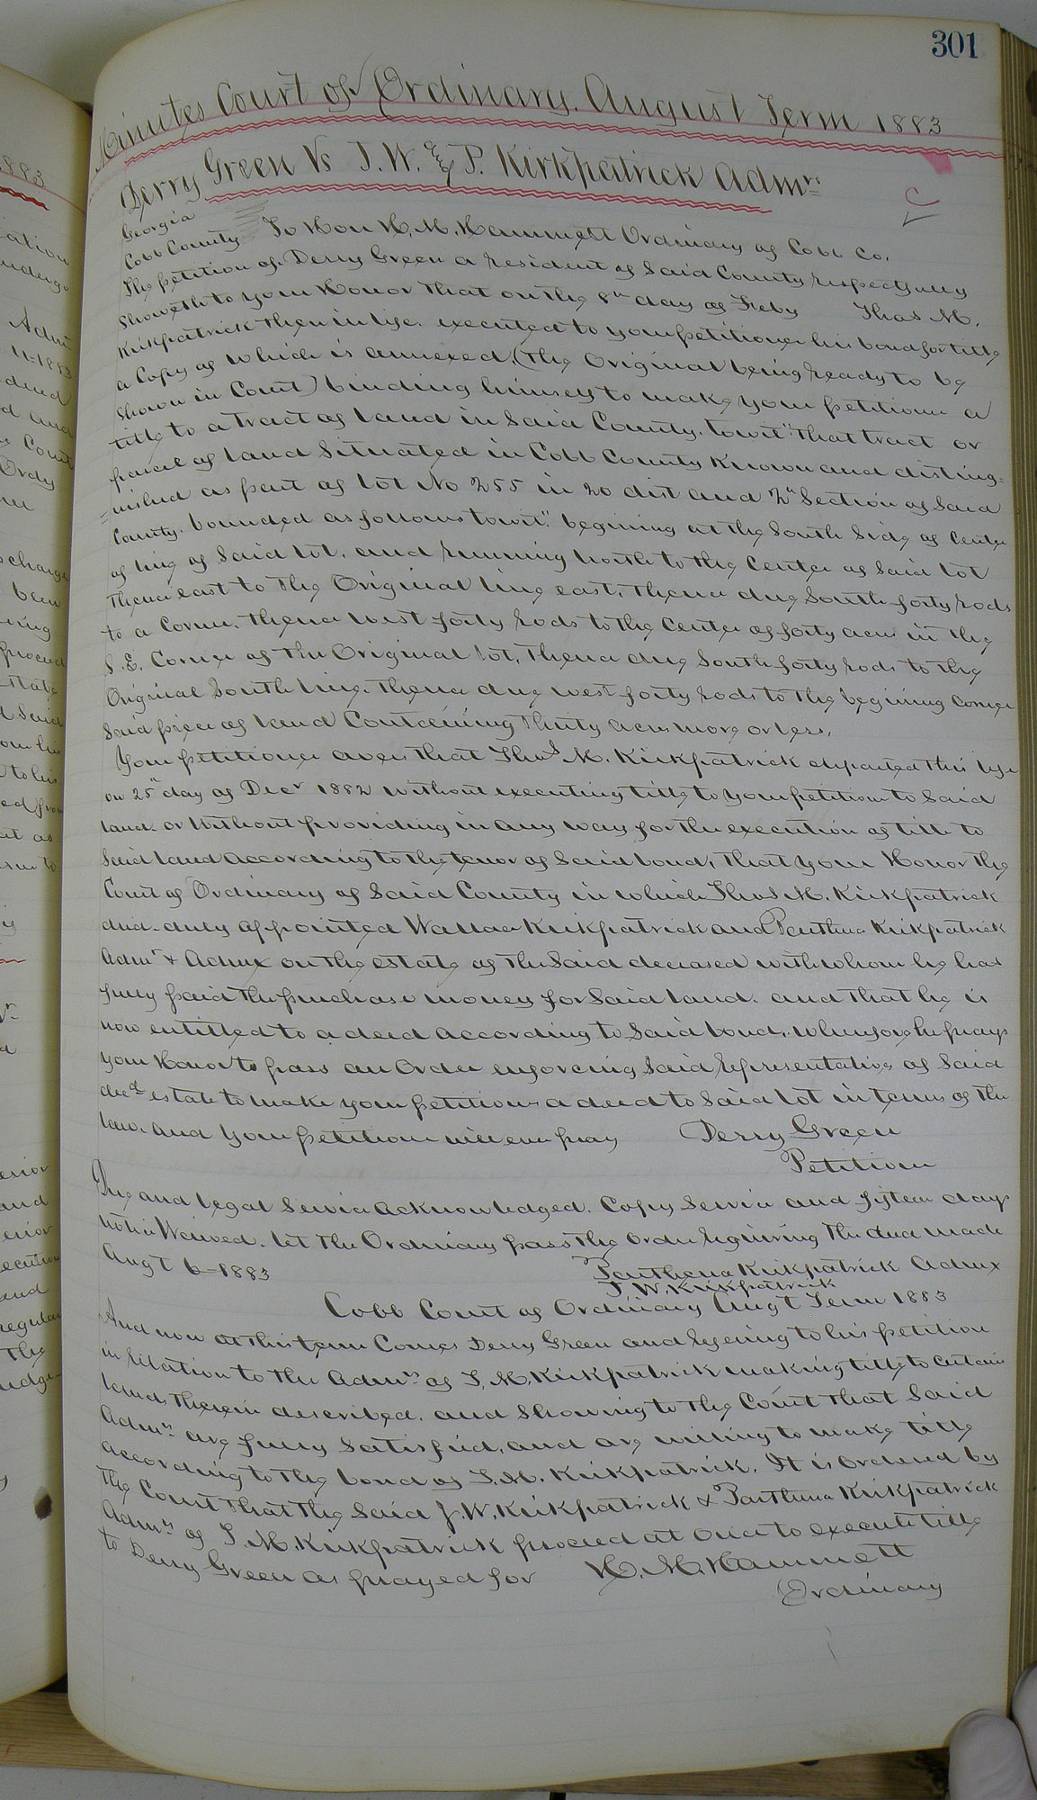 301
Minutes Court of Ordinary. August Term 1883
Derry Green Vs J. W. & P. Kirkpatrick Admrs
Georgia
Cobb County To Hon H. M. Hammett Ordinary of Cobb Co.
The petition of Derry Green a resident of Said County respectfully
Showeth to your Honor that on the 8th day of Feby Thos M.
Kirkpatrick then in life, executed to your petitioner his bond for title
a Copy of which is annexed, (the Original being ready to be
Shown in Court) binding himself to make your petitioner a
title to a tract of land in Said County, towit "that tract or
parcel of land Situated in Cobb County Known and disting=
=uished as part of lot No 255 in 20 dist and 2nd Section of Said
County. bounded as follows towit". begining at the South Side of Center
of line of Said lot, and running North to the Center of Said lot
thence east to the Original line east, thence due South forty rods
to a Corner, thence West forty rods to the Center of forty acres in the
S. E. Corner of the Original lot, thence due South forty rods to the
Original South line, thence due west forty rods to the begining Corner
Said piece of land Containing Thirty acres more or less.
Your petitioner avers that Thos M. Kirkpatrick departed this life
on 25th day of Decr 1882 without executing title to your petitioner to Said
land. or Without providing in any way for the execution of title to
Said land according to the tenor of Said bond, that your Honor the
Court of Ordinary of Said County in which Thos M. Kirkpatrick
died. duly appointed Wallace Kirkpatrick and Parthena Kirkpatrick
Admr & Admx on the estate of the Said deceased with whom he has
fully paid the purchase money for Said land. and that he is
now entitled to a deed according to Said bond, Wherefore he prays
your Honor to pass an Order enforcing Said Representatives of Said
decd estate to make your petitioner a deed to Said lot in terms of the
law. And your petitioner will ever pray Derry Green
Petitioner
Due and legal Service acknowledged. Copy Service and fifteen days
notice Waived. let the Ordinary pass the order requiring the deed made
Augt 6-1883 Parthena Kirkpatrick Admx
J. W. Kirkpatrick
Cobb Court of Ordinary Augt Term 1883
And now at this term Comes Derry Green and refering to his petition
in relation to the Admrs of T. M. Kirkpatrick making title to certain
lands therein described. and Showing to the Court that Said
Admrs are fully Satisfied, and are willing to make title
according to the bond of T. M. Kirkpatrick. It is Ordered by
the Court that the Said J. W. Kirkpatrick & Parthena Kirkpatrick
Admrs of T. M. Kirkpatrick proceed at once to execute title
to Derry Green as prayed for H. M. Hammett
Ordinary